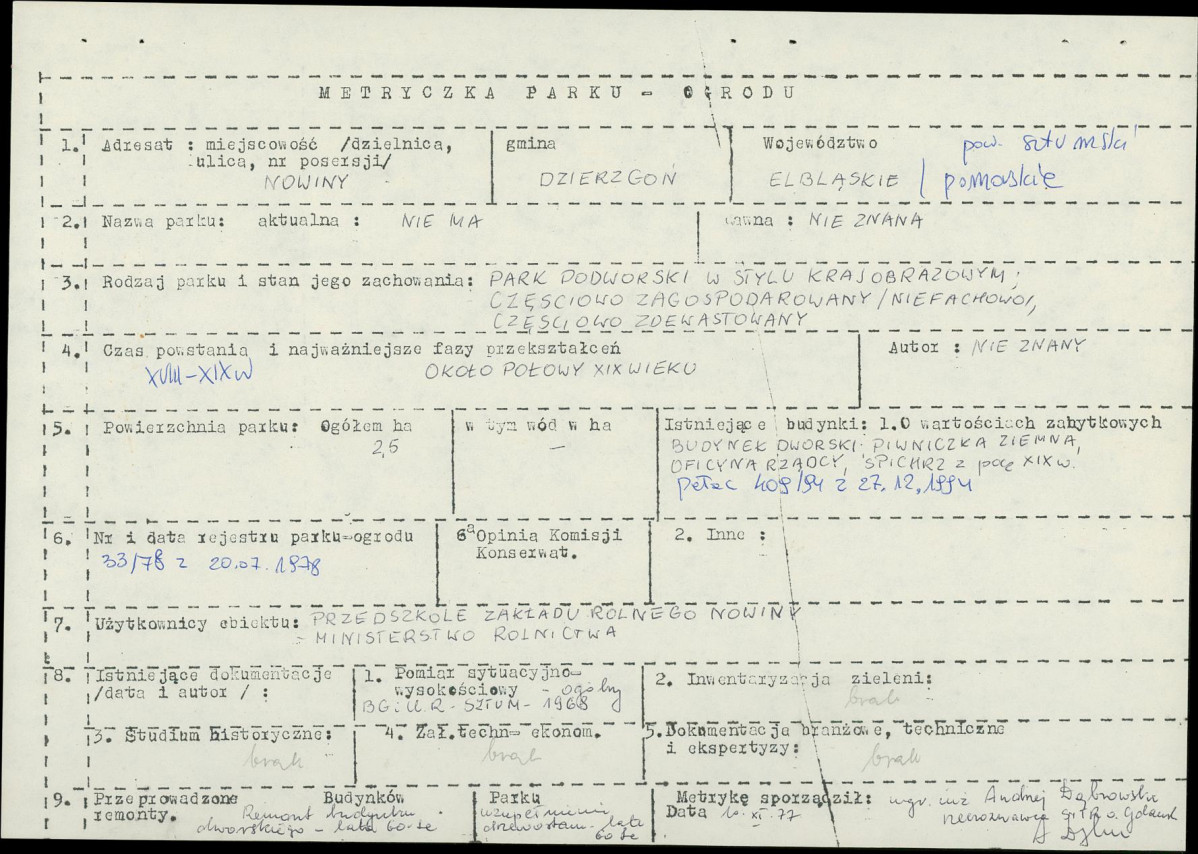 METRYCZKA PARKU - OGRODU
1. Adresat : miejscowość /dzielnica, ulica, nr posersji/
NOWINY
gmina
DZIERZGOŃ
Województwo
pow. sztumski
ELBLĄSKIE / pomorskie
2. Nazwa parku: aktualna : NIE MA
dawna : NIE ZNANA
3. Rodzaj parku i stan jego zachowania: PARK PODWORSKI W STYLU KRAJOBRAZOWYM;
CZĘŚCIOWO ZAGOSPODAROWANY /NIEFACHOWO/,
CZĘŚCIOWO ZDEWASTOWANY
4. Czas powstania i najważniejsze fazy przekształceń
XVIII-XIX w OKOŁO POŁOWY XIX WIEKU
Autor : NIE ZNANY
5. Powierzchnia parku: Ogółem ha
2,5
w tym wód w ha
—
Istniejące budynki: 1.O wartościach zabytkowych
BUDYNEK DWORSKI, PIWNICZKA ZIEMNA,
OFICYNA RZĄDCY, SPICHRZ z poł XIX w.
pałac 409/94 z 27.12.1994
6. Nr i data rejestru parku-ogrodu
33/78 z 20.07.1978
6a Opinia Komisji
Konserwat.
2. Inne :
7. Użytkownicy obiektu: PRZEDSZKOLE ZAKŁADU ROLNEGO NOWINY
- MINISTERSTWO ROLNICTWA
8. Istniejące dokumentacje
/data i autor / :
1. Pomiar sytuacyjno-
wysokościowy - ogólny
BG i U.R - SZTUM - 1968
2. Inwentaryzacja zieleni:
brak
3. Studium historyczne:
brak
4. Zał.techn- ekonom.
brak
5. Dokumentacja branżowe, techniczne
i ekspertyzy:
brak
9. Przeprowadzone
remonty.
Budynków
Remont budynku
dworskiego - lata 60-te
Parku
uzupełnienie
drzewostan. lata
60 te
Metrykę sporządził: mgr. inż Andrzej Dąbrowski
Data 10. XI. 77 rzeczoznawca